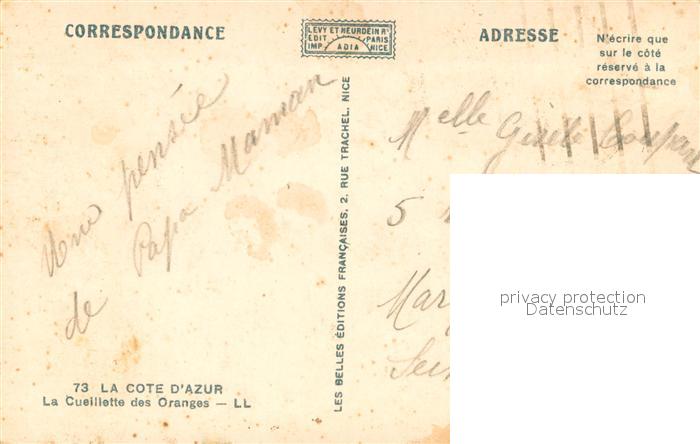 CORRESPONDANCE
LEVY ET NEURDEIN Rs
EDIT PARIS
IMP. ADIA NICE
ADRESSE
N'écrire que
sur le côté
réservé à la
correspondance
Une pensée
de Papa Maman
LES BELLES ÉDITIONS FRANÇAISES, 2, RUE TRACHEL, NICE
Melle
5
privacy protection
Datenschutz
73 LA COTE D'AZUR
La Cueillette des Oranges — LL